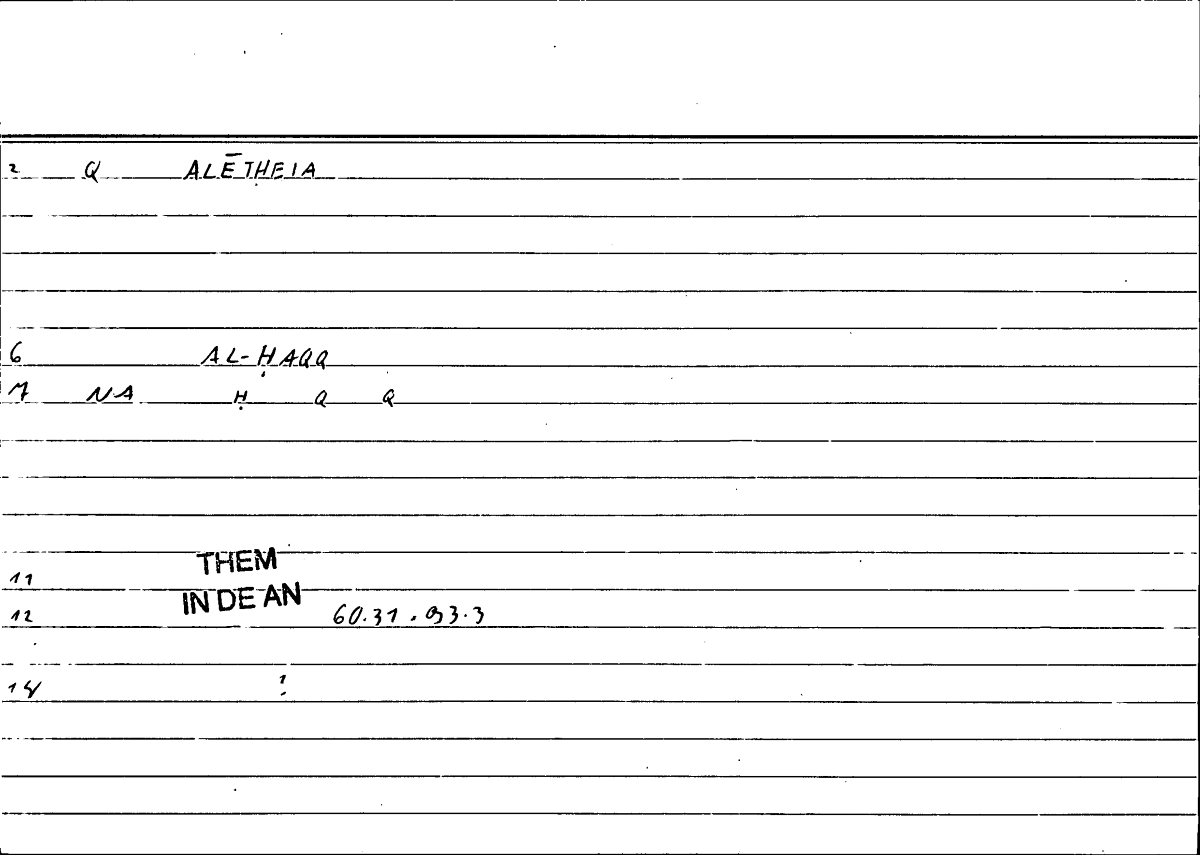 2 Q ALĒTHEIA
6 AL-ḤAQQ
7 NA Ḥ Q Q
THEM
11
IN DE AN
12 60.31.93.3
14 ?